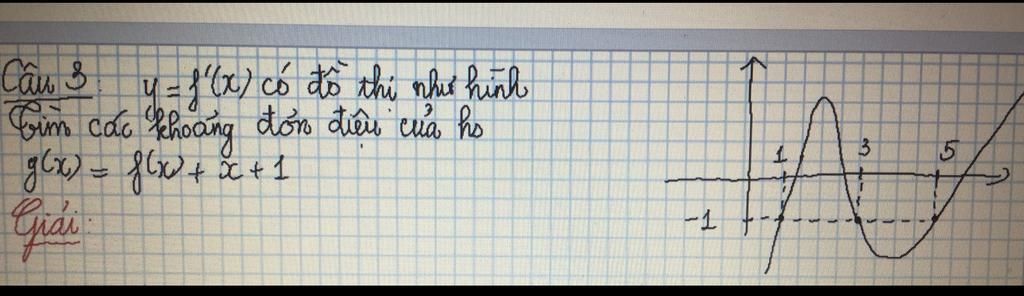 Câu 3: y = f'(x) có đồ thị như hình
Tìm các khoảng đơn điệu của hs
g(x) = f(x) + x + 1
Giải:
1 3 5
-1